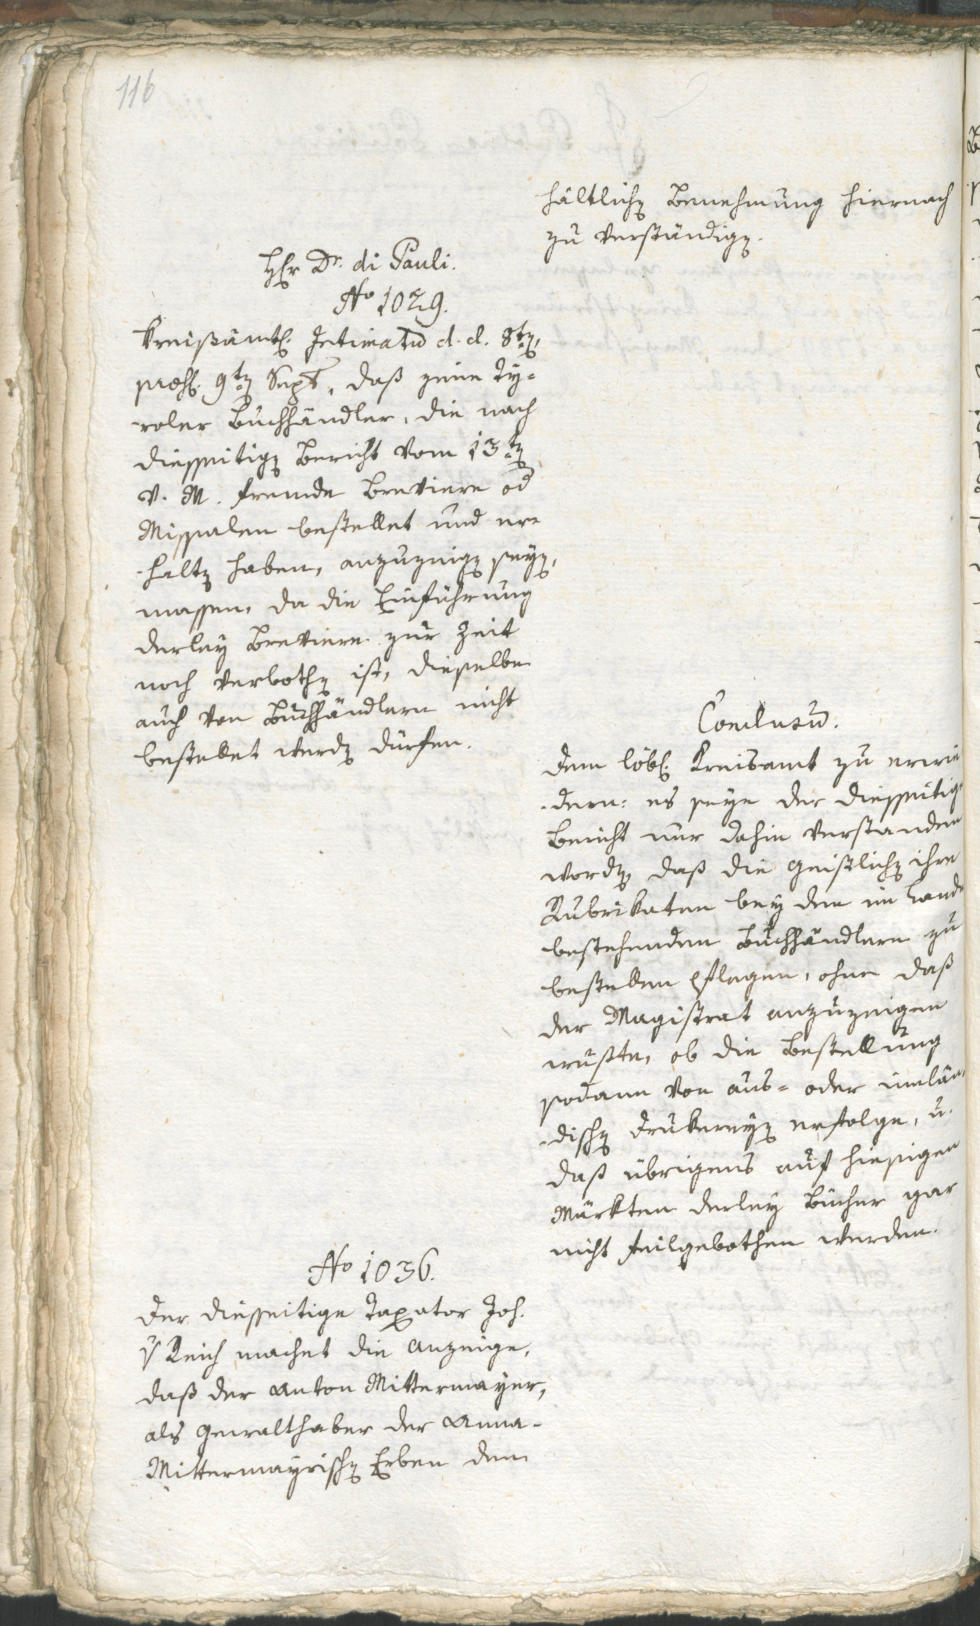 116
hältlich Benehmung hiernach
zu verständig.
Hr Dr. di Pauli.
No 1029.
Kreisämtl. Intimatu d. d. 8t,
praes. 9t Sept, daß jene Ty-
roler Buchhändler, die nach
diesseitig Bericht vom 13t
v. M. fremde Breviere od
Missalen bestellet und er-
halt haben, anzuzeig sey,
massen, da die Einführung
derley Breviere zur Zeit
noch verboth ist, dieselbe
auch von Buchhändlern nicht
bestellet werd dürfen.
Conclusu.
Dem löbl. Kreisamt zu erwie
dern: es seye der diesseitig
Bericht nur dahin verstanden
word, daß die Geistlich ihre
Rubrikaten bey den im Lande
bestehenden Buchhändlern zu
bestellen pflegen, ohne daß
der Magistrat anzuzeigen
wußte, ob die Bestellung
sodann von aus- oder innlän
disch Drukerey erfolge, u.
daß übrigens auf hiesigen
Märkten derley Bücher gar
nicht feilgebothen werden.
No 1036.
Der diesseitige Taxator Joh.
v Reich machet die Anzeige,
daß der Anton Mittermayer,
als Gewalthaber der Anna-
Mittermayrisch Erben dem